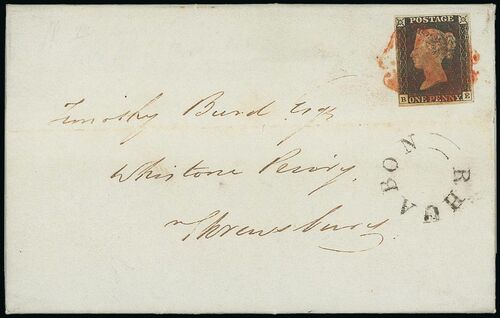 POSTAGE
B ONE PENNY E
Timothy Burd Esqr
Whistone Priory,
nr Shrewsbury.
RHUABON